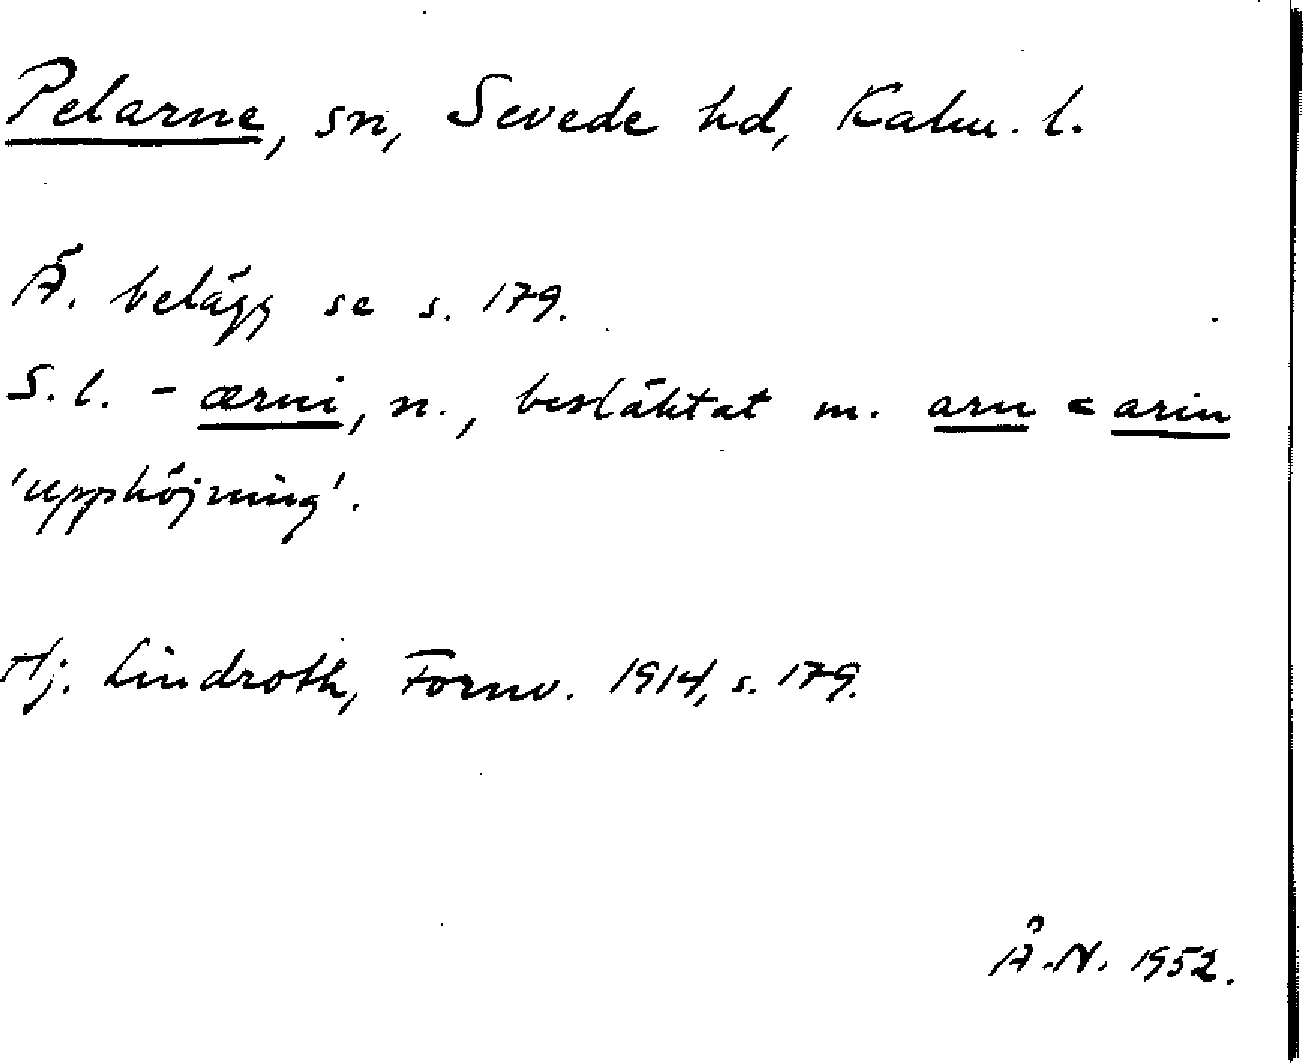 Pelarne, sn, Sevede hd, Kalm. l.
Ä. belägg se s. 179.
S. l. - ærni, n., besläktat m. arn < arin
'upphöjning'.
Hj. Lindroth, Fornv. 1914, s. 179.
Å.N. 1952.